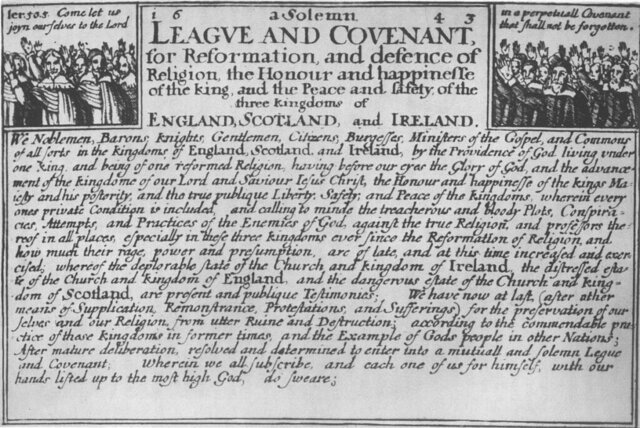 Ier. 50.5. Come let us
joyn ourselves to the Lord
in a perpetuall Covenant
that shall not be forgotten.
1 6 a Solemn 4 3
LEAGVE AND COVENANT,
for Reformation, and defence of
Religion, the Honour and happinesse
of the king, and the Peace and safety of the
three kingdoms of
ENGLAND, SCOTLAND, and IRELAND.
We Noblemen, Barons, knights, Gentlemen, Citizens, Burgesses, Ministers of the Gospel, and Commons
of all sorts in the kingdoms of England, Scotland, and Ireland, by the Providence of God living vnder
one King, and being of one reformed Religion, having before our eyes the Glory of God, and the advance-
ment of the kingdome of our Lord and Saviour Iesus Christ, the Honour and happinesse of the kings Ma
iesty and his posterity, and the true publique Liberty, Safety, and Peace of the Kingdoms, wherein every
ones private Condition is included, and calling to minde the treacherous and bloody Plots, Conspira-
cies, Attempts, and Practices of the Enemies of God, against the true Religion, and professors the-
reof in all places, especially in these three kingdoms ever since the Reformation of Religion, and
how much their rage, power and presumption, are of late, and at this time increased and exer-
cised; whereof the deplorable state of the Church and kingdom of Ireland, the distressed esta-
te of the Church and Kingdom of England, and the dangerous estate of the Church and King-
dom of Scotland, are present and publique Testimonies; We have now at last, (after other
means of Supplication, Remonstrance, Protestations, and Sufferings) for the preservation of our
selves and our Religion, from utter Ruine and Destruction; according to the commendable pra-
ctice of these Kingdoms in former times, and the Example of Gods people in other Nations;
After mature deliberation, resolved and determined to enter into a mutuall and solemn Legue
and Covenant; wherein we all subscribe, and each one of us for himself, with our
hands listed up to the most high God, do sweare;